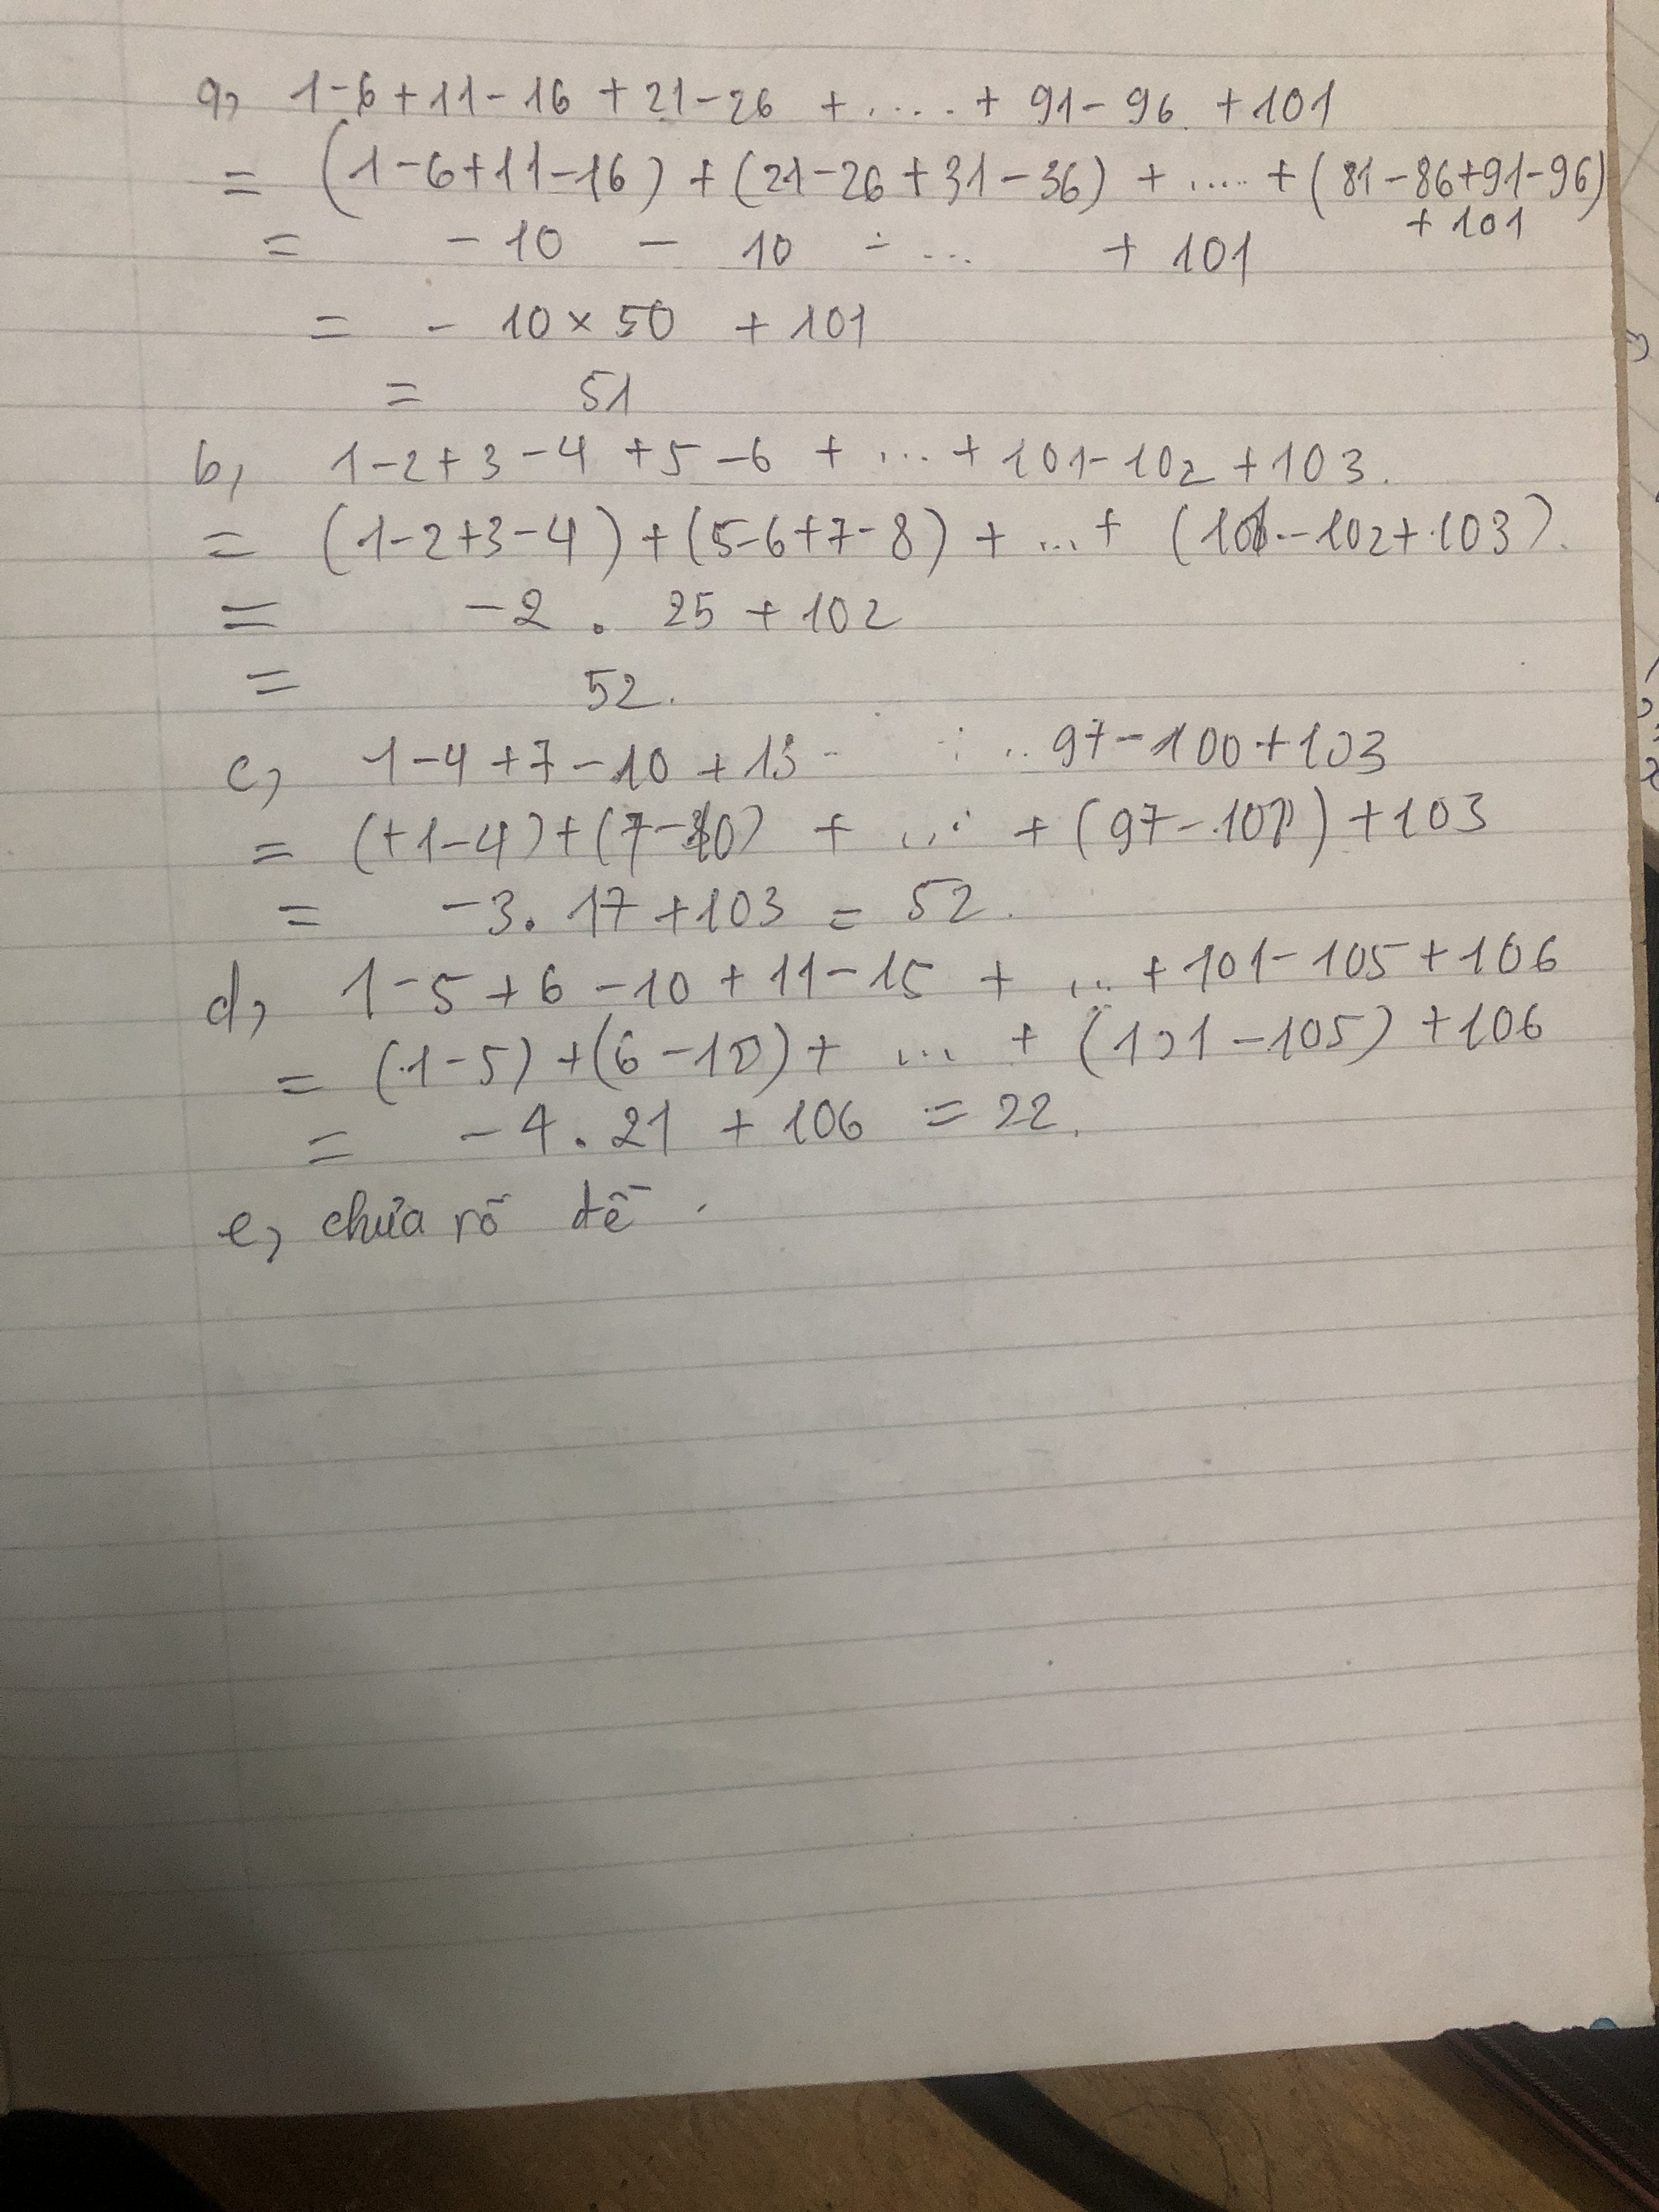 a, 1-6+11-16+21-26+.....+91-96+101
= (1-6+11-16)+(21-26+31-36)+.....+(81-86+91-96)
+101
= -10 - 10 - ... + 101
= - 10 × 50 + 101
= 51
b, 1-2+3-4+5-6+...+101-102+103.
= (1-2+3-4)+(5-6+7-8)+...+(101-102+103).
= -2 . 25 + 102
= 52.
c, 1-4+7-10+13- ... 97-100+103
= (+1-4)+(7-10)+...+(97-100)+103
= -3. 17+103 = 52.
d, 1-5+6-10+11-15+...+101-105+106
= (1-5)+(6-10)+...+(101-105)+106
= -4.21+106 = 22.
e, chưa rõ đề.